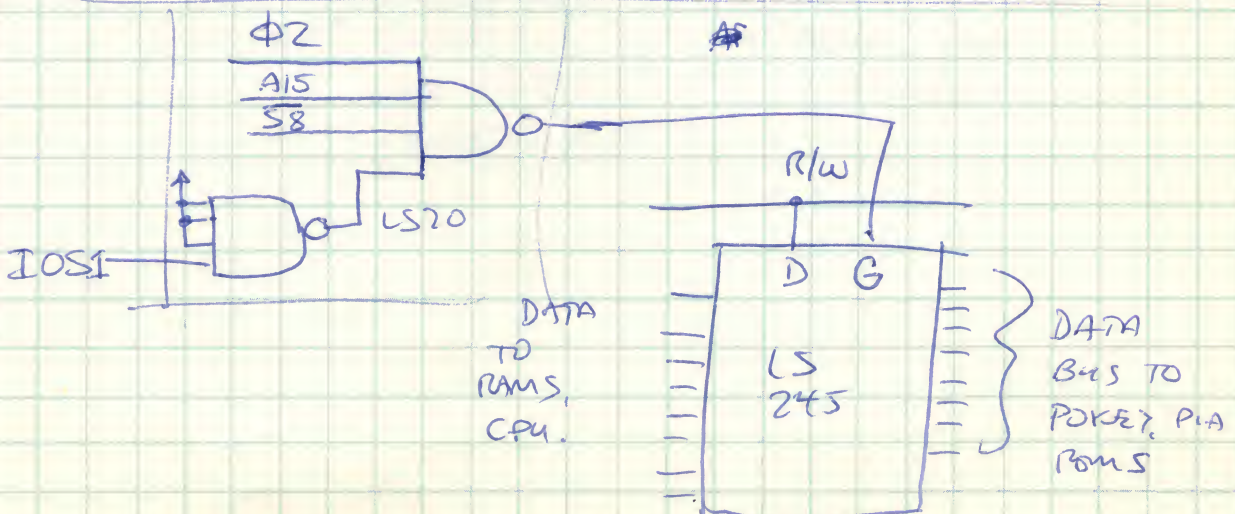 Φ2
A15
S8
LS20
IOS1
R/W
D G
LS
245
DATA
TO
RAMS,
CPU.
DATA
BUS TO
POKEY, PIA
ROMS